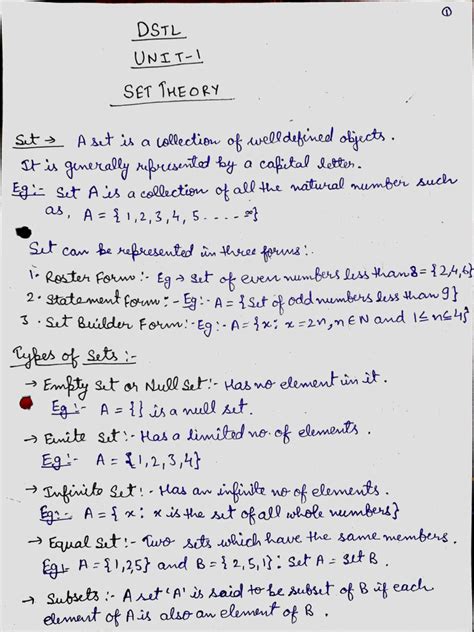 ①
DSTL
UNIT-1
SET THEORY
Set → A set is a collection of well defined objects.
It is generally represented by a capital letter.
Eg:- Set A is a collection of all the natural number such
as, A = {1,2,3,4,5.....∞}
Set can be represented in three forms:-
1. Roster Form:- Eg → Set of even numbers less than 8 = {2,4,6}
2. Statement Form:- Eg:- A = {Set of odd numbers less than 9}
3. Set Builder Form:- Eg:- A = {x: x=2n, n∈N and 1≤n≤4}
Types of Sets:-
→ Empty Set or Null Set:- Has no element in it.
Eg:- A = {} is a null set.
→ Finite Set:- Has a limited no. of elements.
Eg:- A = {1,2,3,4}
→ Infinite Set:- Has an infinite no of elements.
Eg:- A = {x: x is the set of all whole numbers}
→ Equal Set:- Two sets which have the same members.
Eg:- A = {1,2,5} and B = {2,5,1}: Set A = Set B.
→ Subsets:- A set 'A' is said to be subset of B if each
element of A is also an element of B.